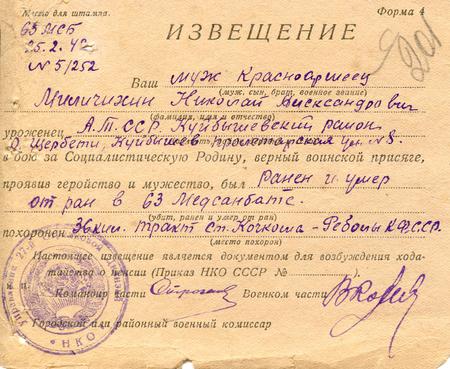 Место для штампа.
Форма 4
63 МСБ
25.2.42
№ 5/252
201
ИЗВЕЩЕНИЕ
Ваш муж Красноармеец
(муж, сын, брат, военное звание)
Миличихин Николай Александрович
(фамилия, имя и отчество)
уроженец А.Т.ССР. Куйбышевский район
Щербети, Куйбышев пролетарская ул. №8.
в бою за Социалистическую Родину, верный воинской присяге,
проявив геройство и мужество, был Ранен и умер
от ран в 63 Медсанбате.
(убит, ранен и умер от ран)
похоронен 36 км. тракт ст. Кочкома - Реболы КФССР.
(место похорон)
Настоящее извещение является документом для возбуждения хода-
тайства о пенсии (Приказ НКО СССР №
Командир части
Военком части
Городской или районный военный комиссар
Управление 27-й
НКО